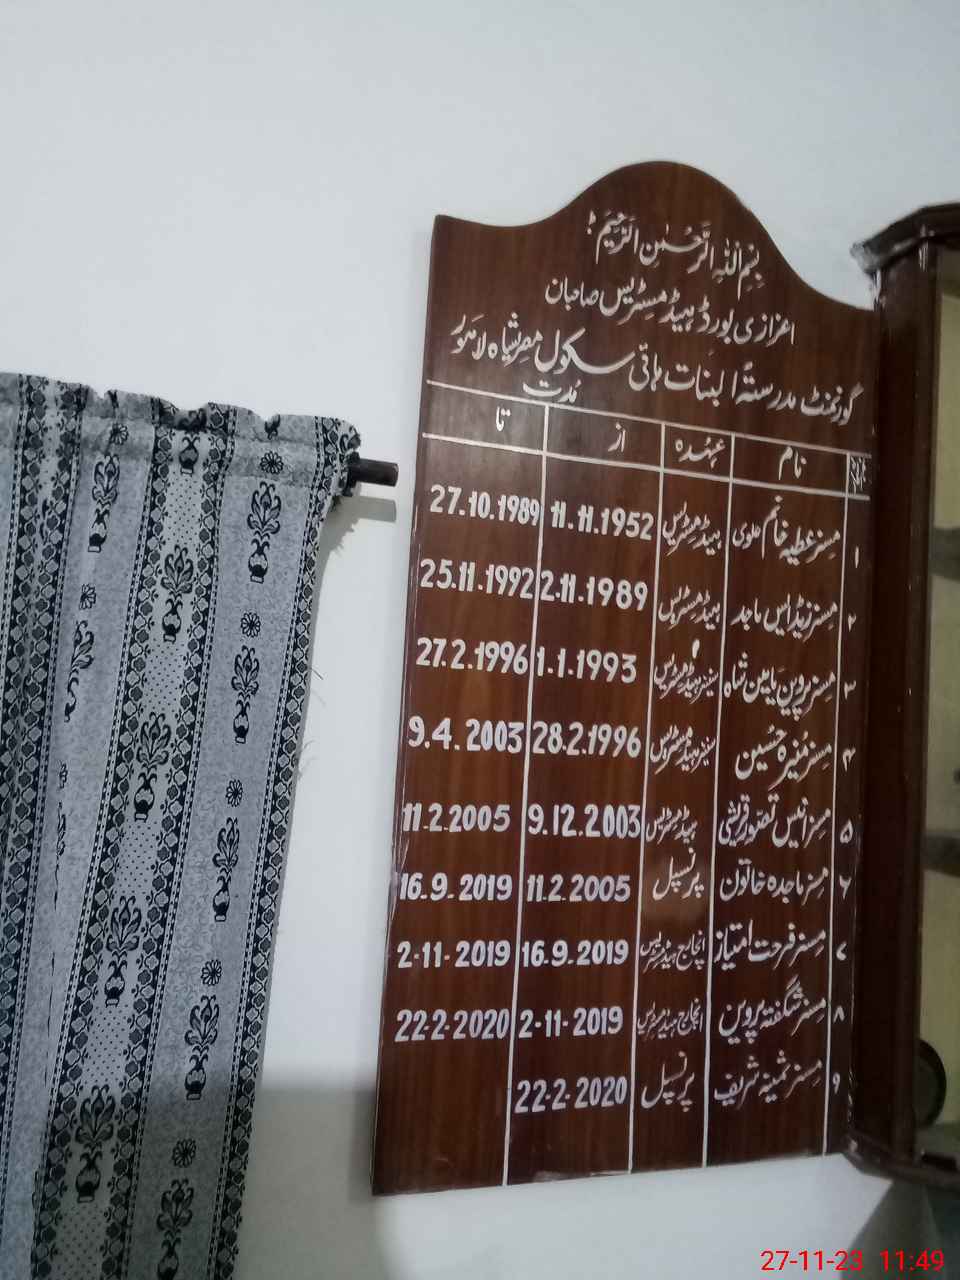 بِسْمِ اللّٰہِ الرَّحْمٰنِ الرَّحِیْمِ
اعزازی بورڈ ہیڈ مسٹریس صاحبان
گورنمنٹ مدرستہ البنات ہائی سکول مصری شاہ لاہور
مُدت
نام عہدہ از تا
۱ مسز عطیہ خانم علوی ہیڈ مسٹریس 11.11.1952 27.10.1989
۲ مسز زیڈ ایس ماجد ہیڈ مسٹریس 2.11.1989 25.11.1992
۳ مسز پروین یامین شاہ سینئر ہیڈ مسٹریس 1.1.1993 27.2.1996
۴ مسز مُنیرہ حسین سینئر ہیڈ مسٹریس 28.2.1996 9.4.2003
۵ مسز انیس تصوّر قریشی ہیڈ مسٹریس 9.12.2003 11.2.2005
۶ مسز ماجدہ خاتون پرنسپل 11.2.2005 16.9.2019
۷ مسز فرحت امتیاز انچارج ہیڈ مسٹریس 16.9.2019 2-11-2019
۸ مسز شگفتہ پروین انچارج ہیڈ مسٹریس 2-11-2019 22-2-2020
۹ مسز ثمینہ شریف پرنسپل 22-2-2020
27-11-23 11:49